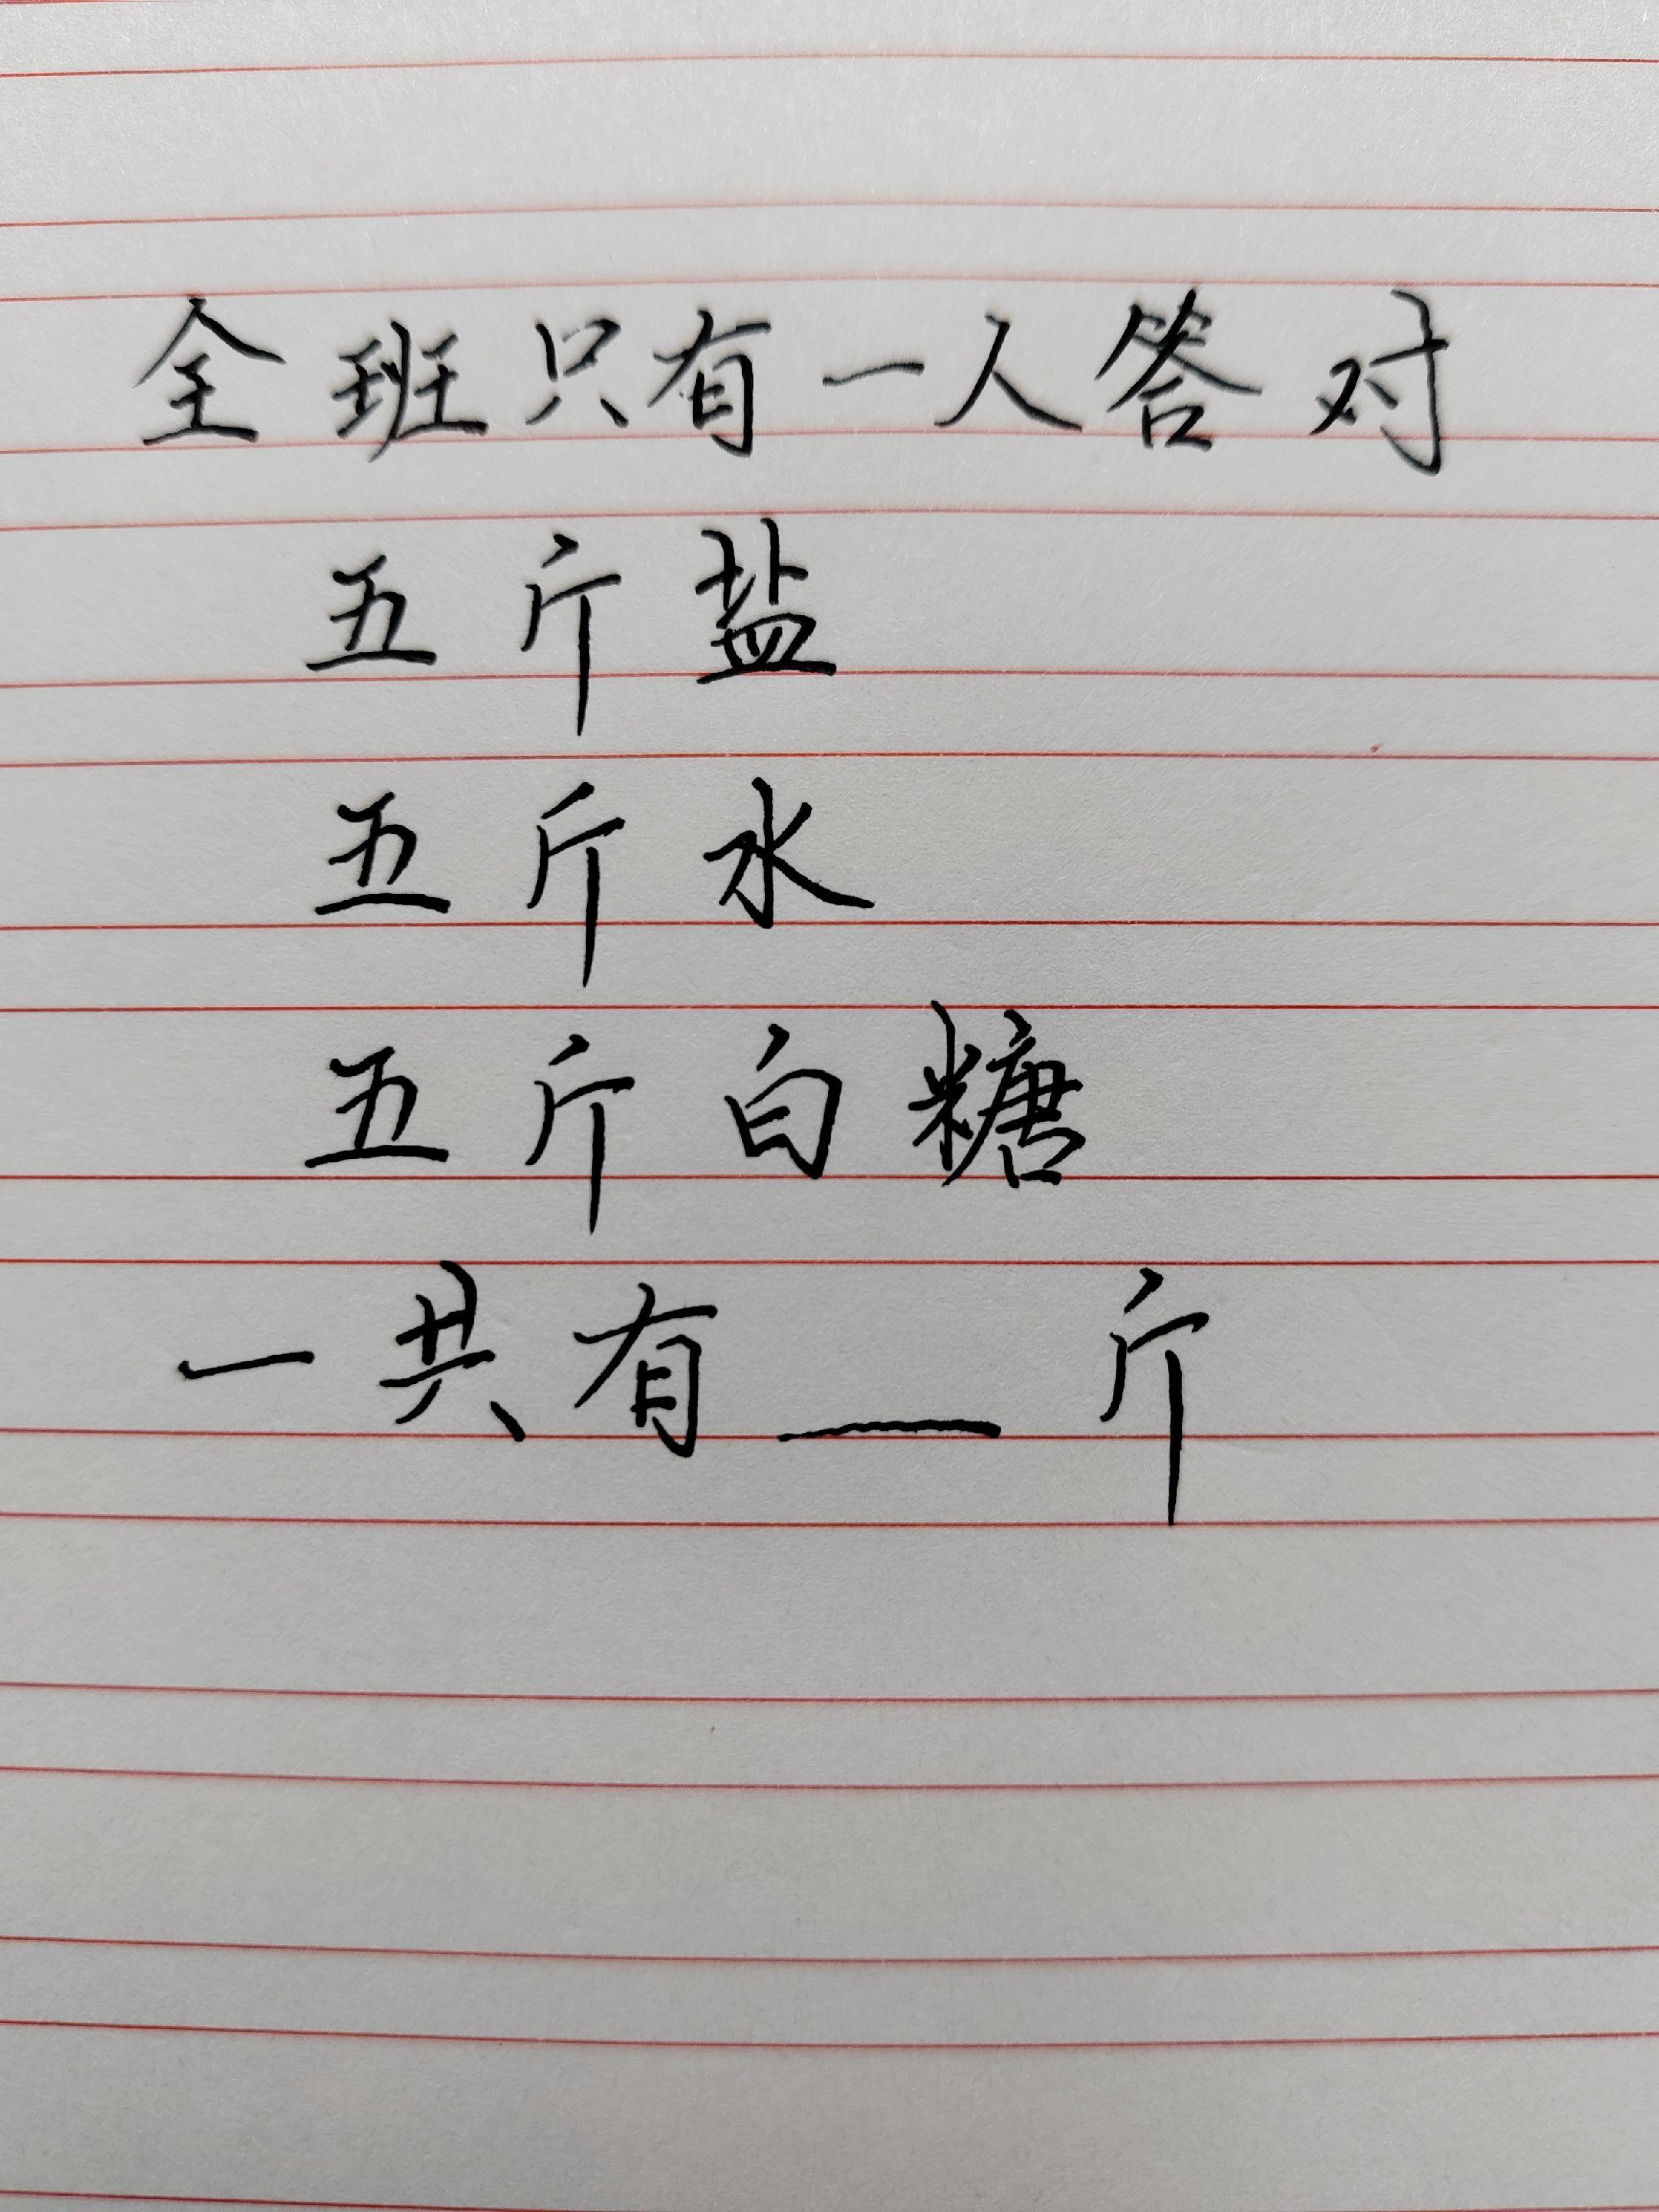 全班只有一人答对
五斤盐
五斤水
五斤白糖
一共有___斤